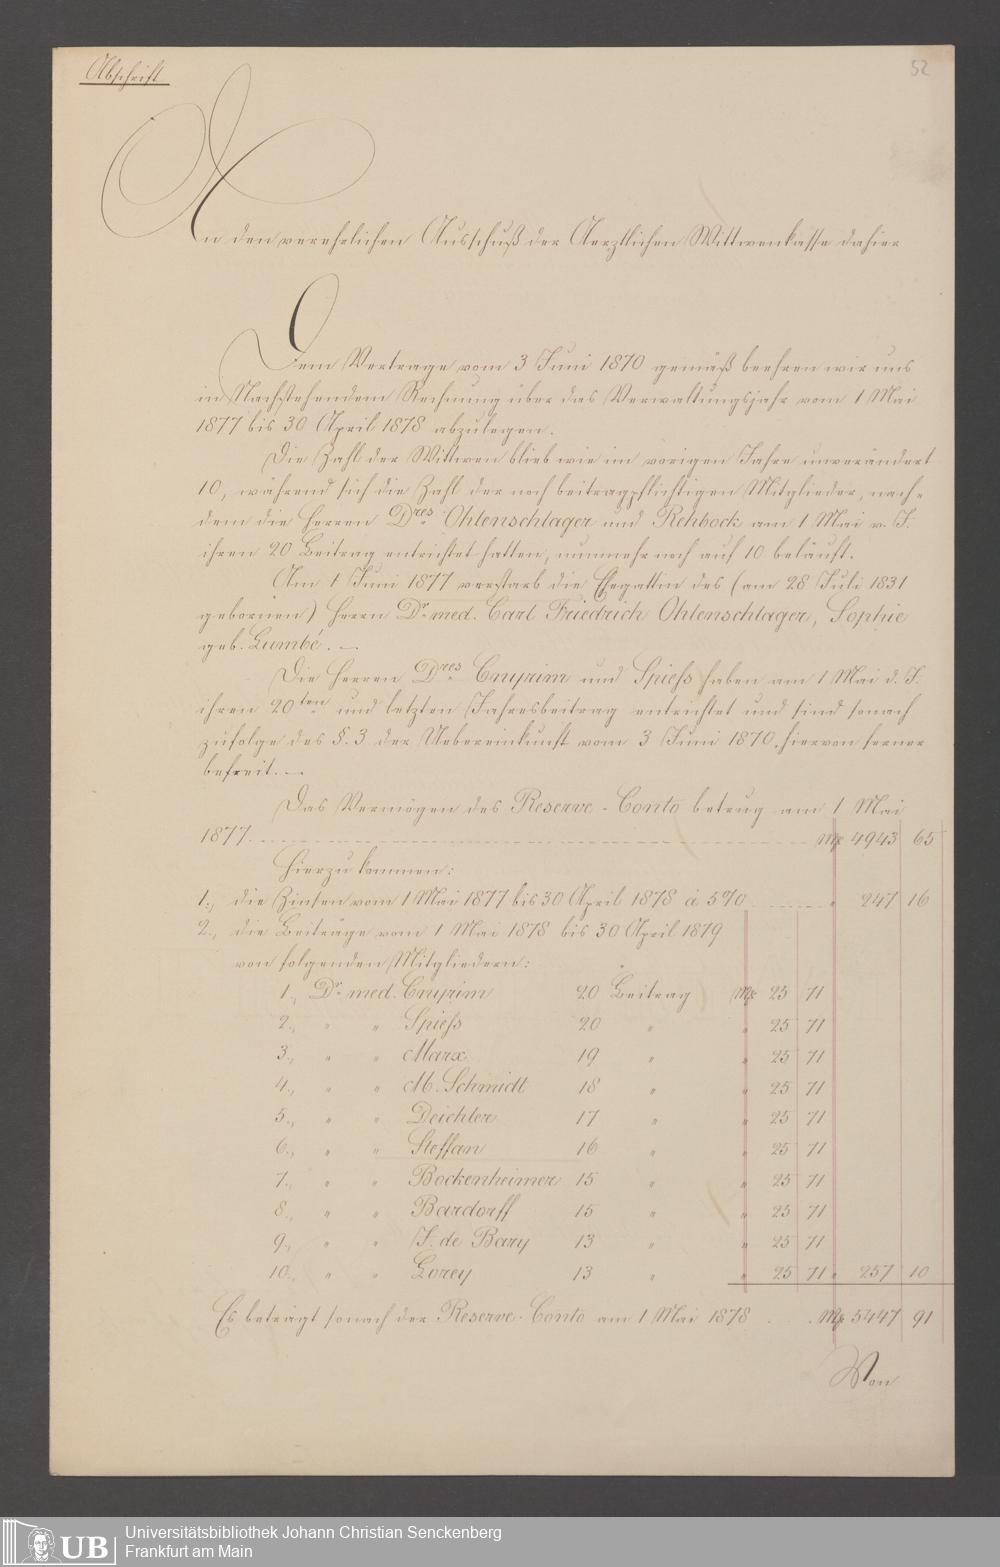 Abschrift
52
An den verehrlichen Ausschuß der Aerztlichen Wittwenkasse dahier
Dem Vertrage vom 3 Juni 1870 gemäß beehren wir uns
in Nachstehendem Rechnung über das Verwaltungsjahr vom 1 Mai
1877 bis 30 April 1878 abzulegen.
Die Zahl der Wittwen blieb wie im vorigen Jahre unverändert
10, während sich die Zahl der noch beitragspflichtigen Mitglieder, nach-
dem die Herren Dres Ohlenschlager und Rehbock am 1 Mai v. J.
ihren 20 Beitrag entrichtet hatten, nunmehr noch auf 10 beläuft.
Am 1 Juni 1877 verstarb die Ehegattin des (am 28 Juli 1831
gebornen) Herrn Dr. med. Carl Friedrich Ohlenschlager, Sophie
geb. Lumbé. —
Die Herren Dres Cnyrim und Spiess haben am 1 Mai d. J.
ihren 20ten und letzten Jahresbeitrag entrichtet und sind sonach
zufolge des §. 3 der Uebereinkunft vom 3 Juni 1870, hiervon ferner
befreit. —
Das Vermögen des Reserve-Conto betrug am 1 Mai
1877 Mk 4943 65
Hierzu kommen:
1., die Zinsen vom 1 Mai 1877 bis 30 April 1878 à 5% " 247 16
2., die Beiträge vom 1 Mai 1878 bis 30 April 1879
von folgenden Mitgliedern:
1., Dr. med. Cnyrim 20 Beitrag Mk 25 71
2., " " Spiess 20 " " 25 71
3., " " Marx 19 " " 25 71
4., " " M. Schmidt 18 " " 25 71
5., " " Deichler 17 " " 25 71
6., " " Steffan 16 " " 25 71
7., " " Bockenheimer 15 " " 25 71
8., " " Bardorff 15 " " 25 71
9., " " J. de Bary 13 " " 25 71
10., " " Lorey 13 " " 25 71 " 257 10
Es beträgt sonach der Reserve-Conto am 1 Mai 1878 . . Mk 5447 91
Von
UB Universitätsbibliothek Johann Christian Senckenberg
Frankfurt am Main